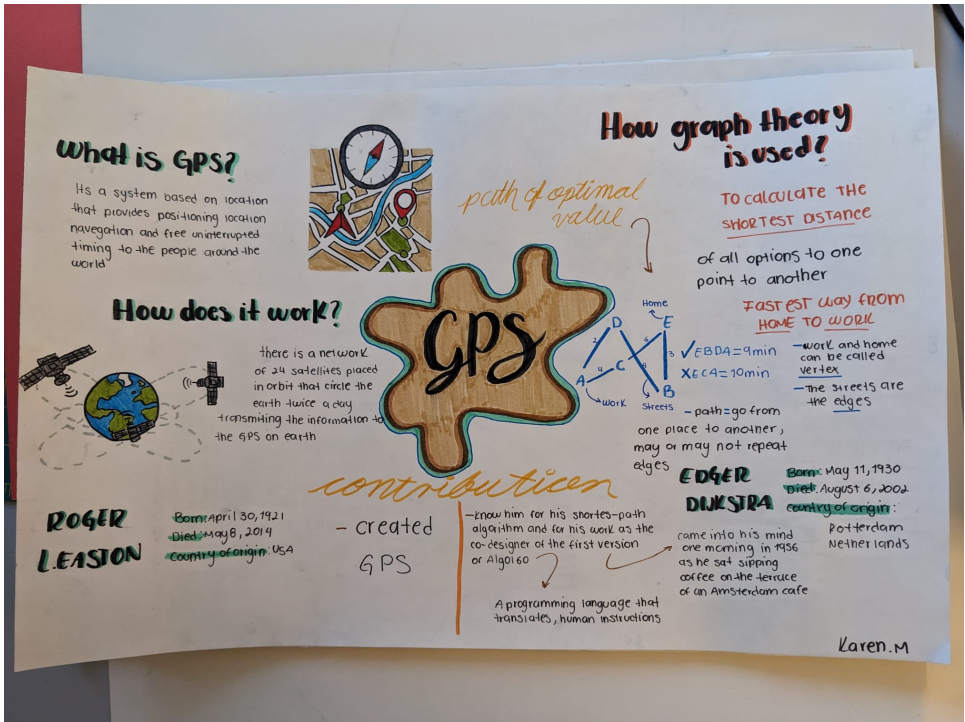 What is GPS?
Its a system based on location
that provides positioning location
navegation and free uninterrupted
timing to the people around the
world
How does it work?
there is a network
of 24 satellites placed
in orbit that circle the
earth twice a day
transmiting the information to
the GPS on earth
GPS
How graph theory
is used?
path of optimal
value
TO CALCULATE THE
SHORTEST DISTANCE
of all options to one
point to another
FASTEST WAY FROM
HOME TO WORK
Home
D
E
2
4
6
3
C
4
A
B
Work
Streets
✓EBDA=9min
XECA=10min
-work and home
can be called
vertex
-The streets are
the edges
-path=go from
one place to another,
may or may not repeat
edges
contributicen
ROGER
L.EASTON
Born: April 30, 1921
Died: May 8, 2014
Country of origin: USA
- created
GPS
-Know him for his shortes-path
algorithm and for his work as the
co-designer of the first version
of Algol 60
A programming language that
translates, human instructions
EDGER
DIJKSTRA
Born: May 11, 1930
Died: August 6, 2002
country of origin:
Rotterdam
Netherlands
came into his mind
one morning in 1956
as he sat sipping
coffee on the terrace
of an Amsterdam cafe
Karen.M